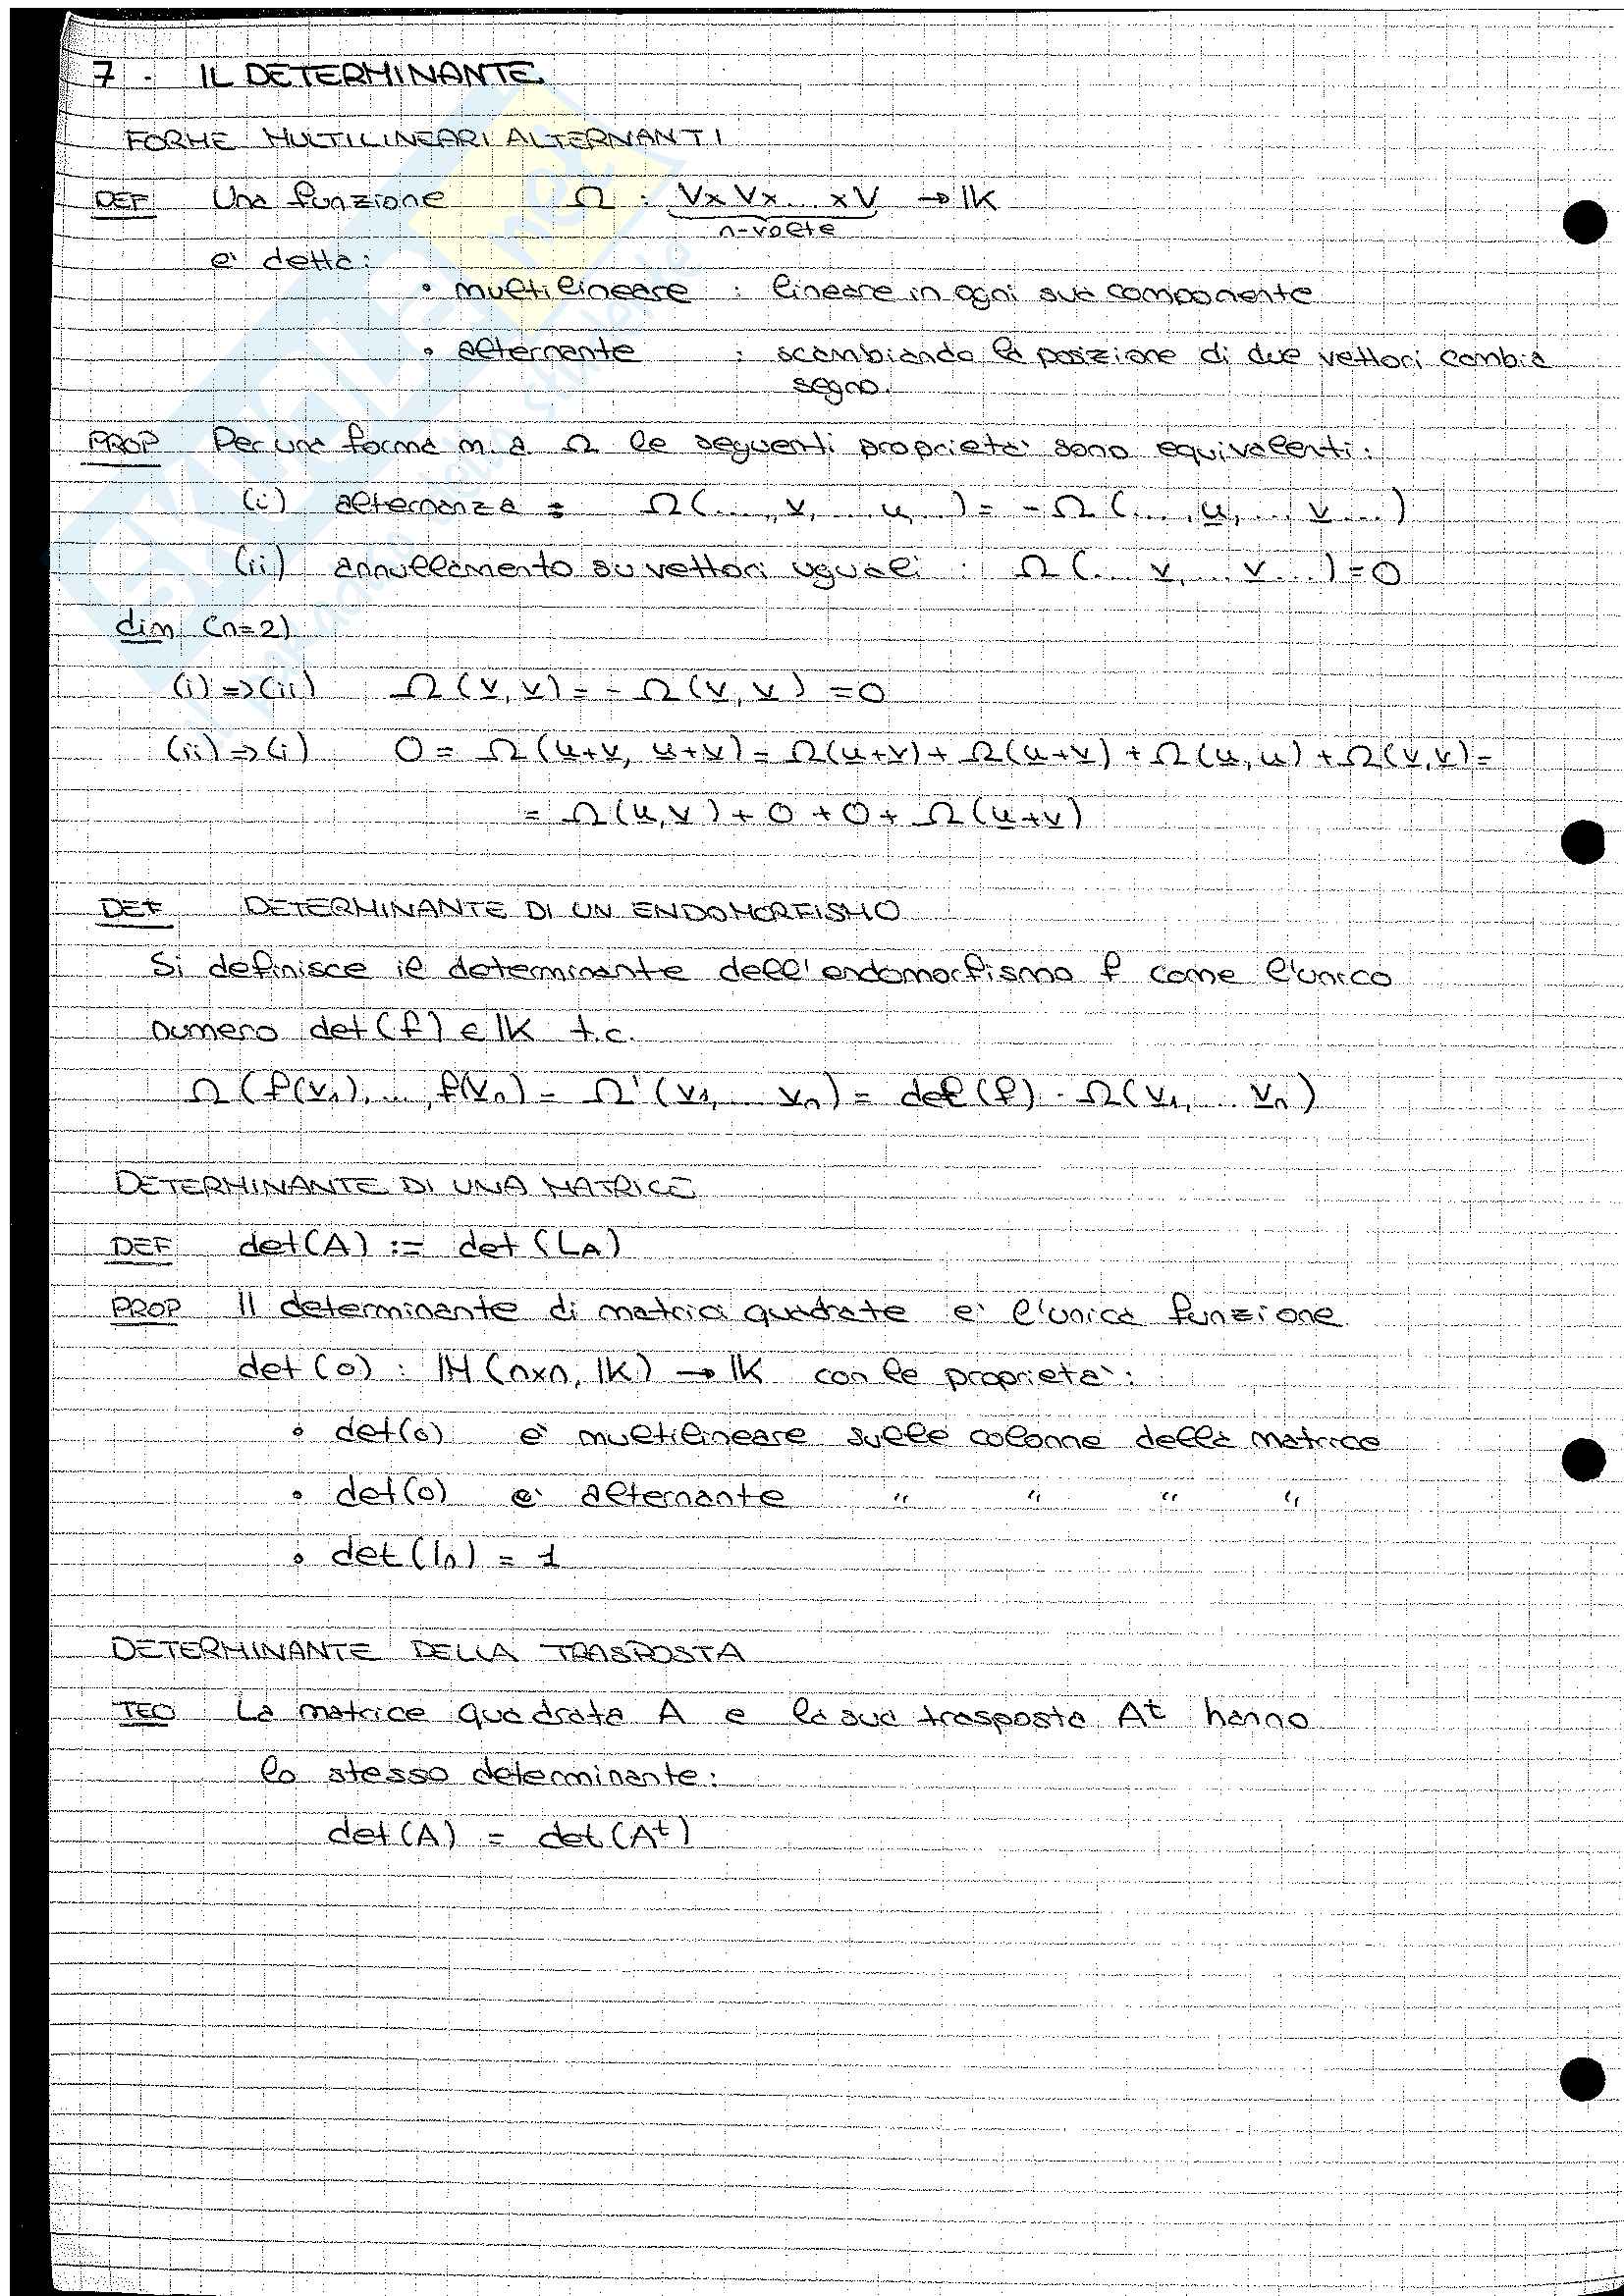 7. IL DETERMINANTE.
FORME MULTILINEARI ALTERNANTI
DEF Una funzione Ω : V x V x ... x V → IK
n-volte
e' detta:
• multilineare : lineare in ogni sua componente
• alternante : scambiando la posizione di due vettori cambia
segno.
PROP Per una forma m. a Ω le seguenti proprieta' sono equivalenti:
(i) alternanza : Ω(..., v, ... u, ..) = - Ω(..., u, .., v ...)
(ii) annullamento su vettori uguali : Ω(... v, ... v ...) = 0
dim (n=2)
(i) => (ii) Ω(v, v) = - Ω(v, v) = 0
(ii) => (i) 0 = Ω(u+v, u+v) = Ω(u+v) + Ω(u+v) + Ω(u, u) + Ω(v, v) =
= Ω(u, v) + 0 + 0 + Ω(u+v)
DEF DETERMINANTE DI UN ENDOMORFISMO
Si definisce il determinante dell'endomorfismo f come l'unico
numero det(f) ∈ IK t.c.
Ω(f(v1), ..., f(vn) = Ω'(v1, ... vn) = det(f) · Ω(v1, ... vn)
DETERMINANTE DI UNA MATRICE
DEF det(A) := det(LA)
PROP Il determinante di matrici quadrate e' l'unica funzione
det(o) : IM(nxn, IK) → IK con le proprieta':
• det(o) e' multilineare sulle colonne della matrice
• det(o) e' alternante " " " "
• det(In) = 1
DETERMINANTE DELLA TRASPOSTA
TEO La matrice quadrata A e la sua trasposta Aᵗ hanno
lo stesso determinante:
det(A) = det(Aᵗ)